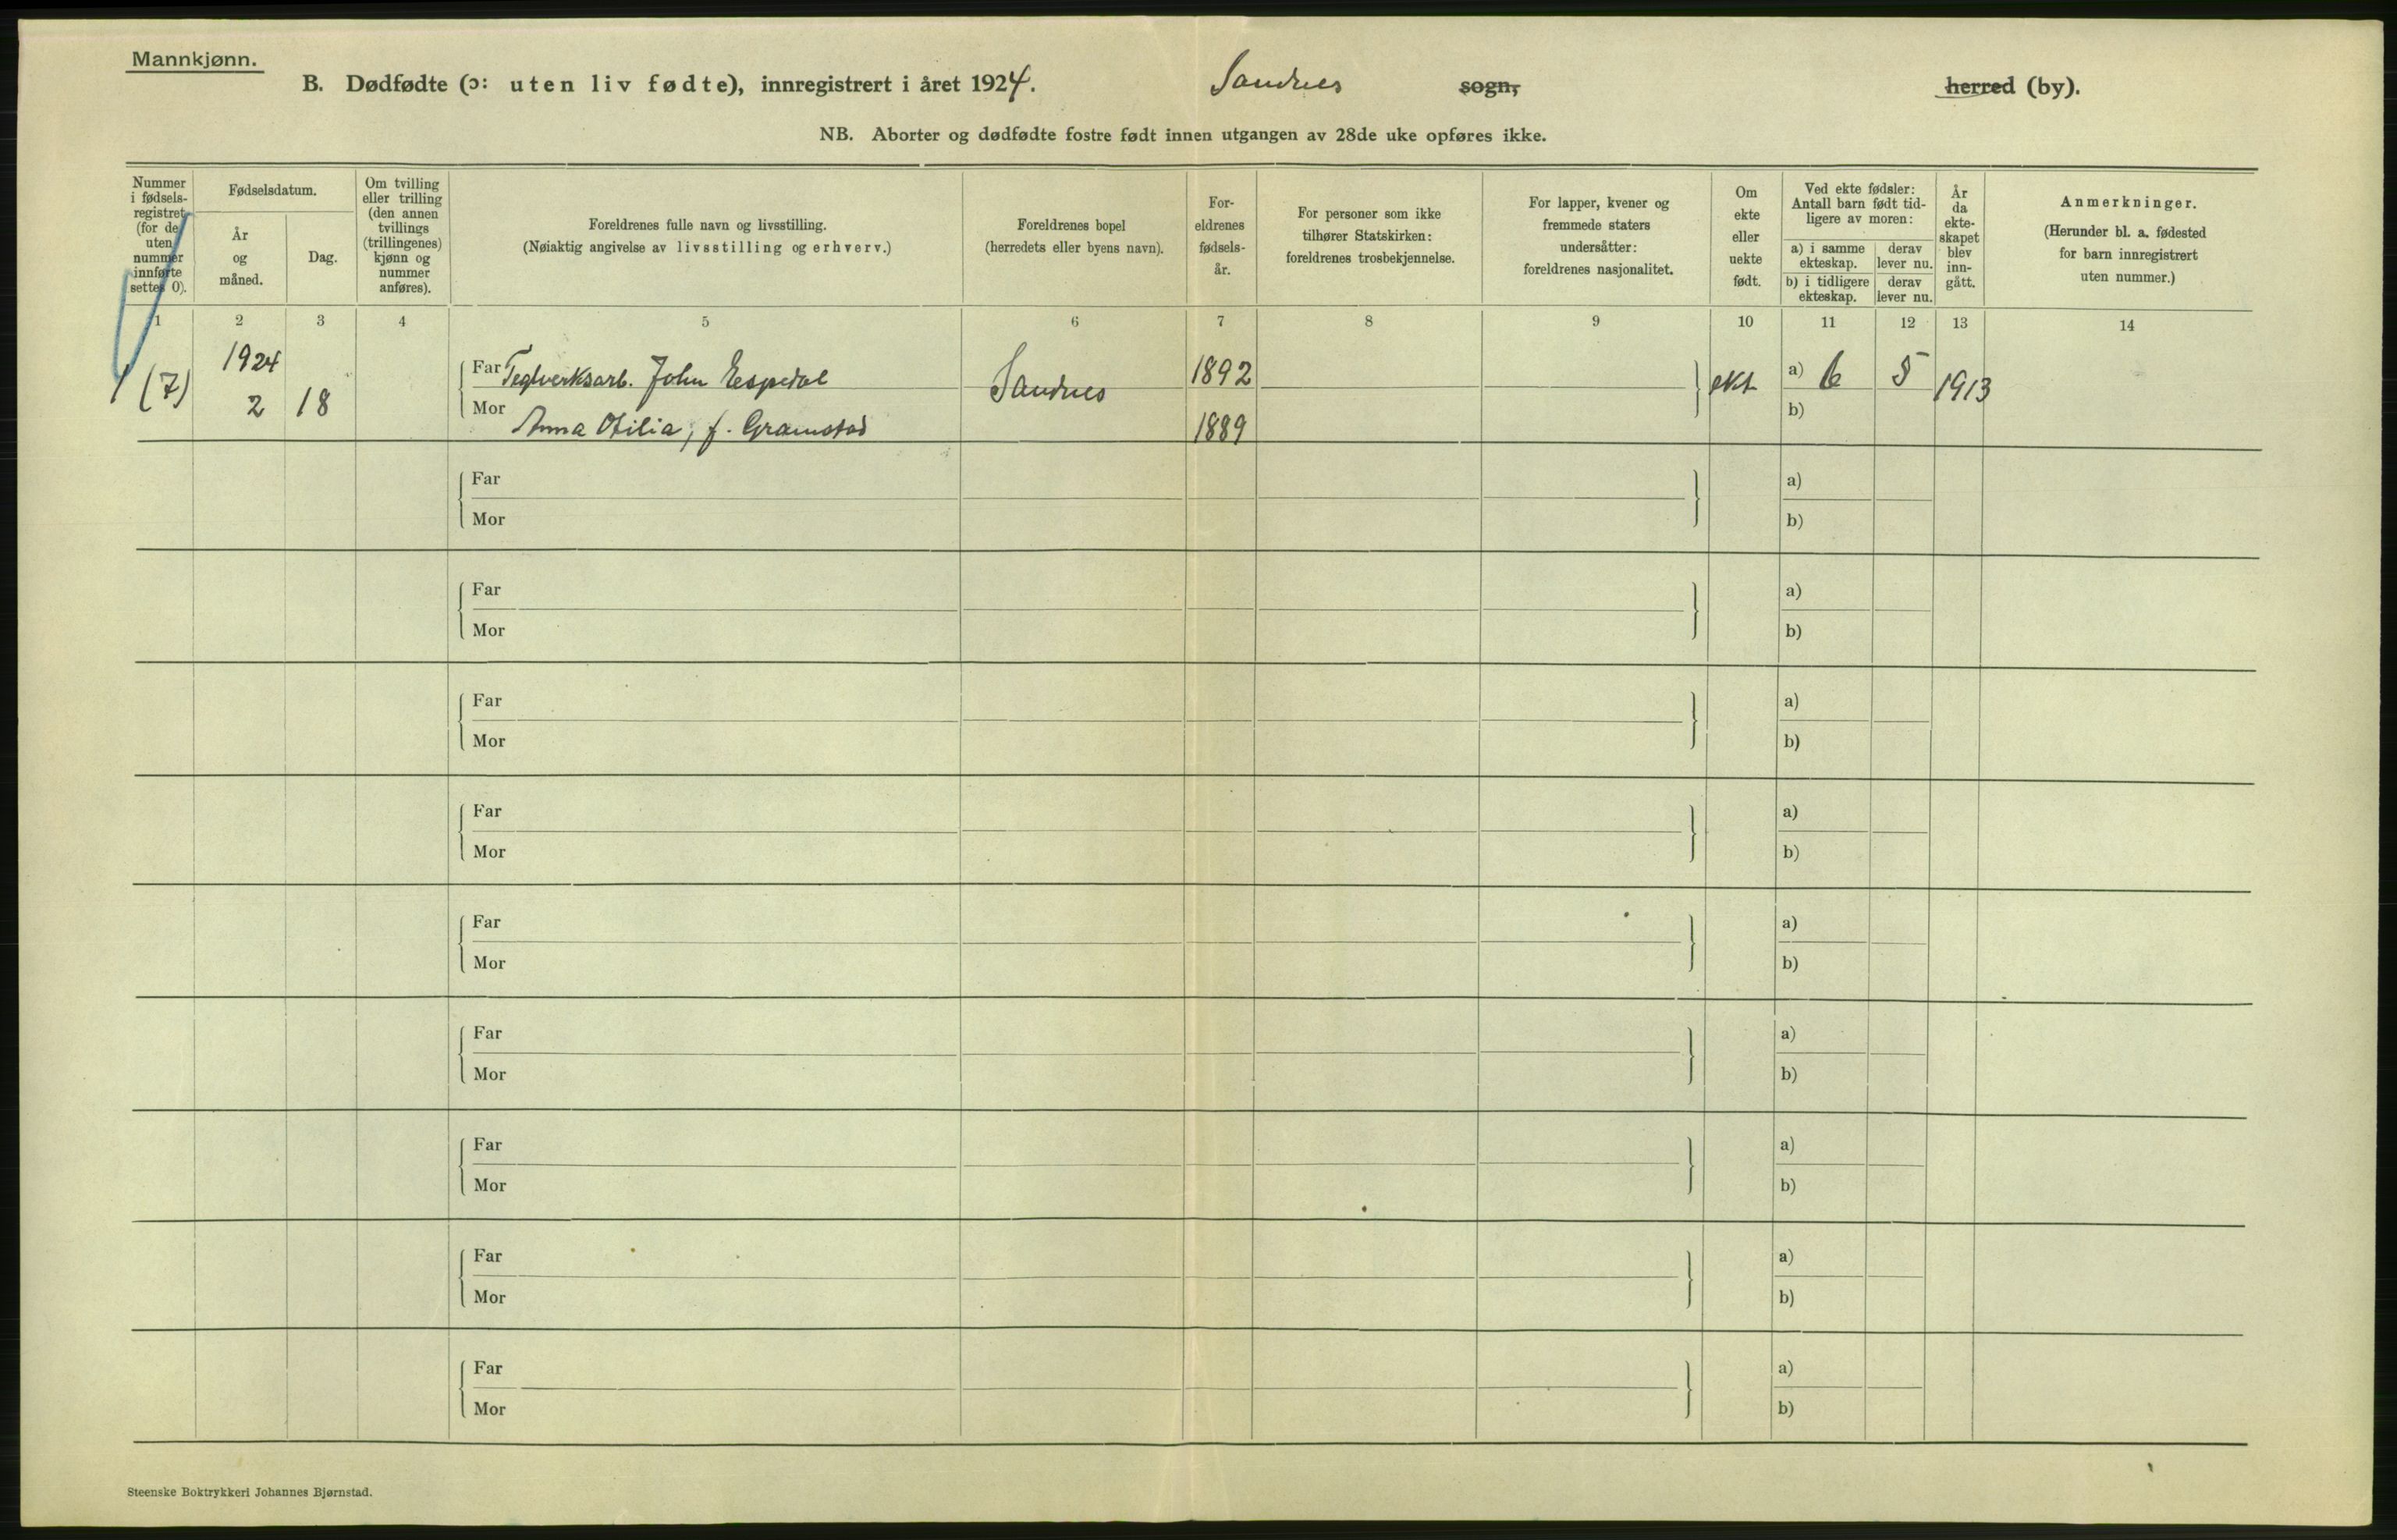 Mannkjønn.
B. Dødfødte (ɔ: uten liv fødte), innregistrert i året 1924. Sandnes sogn, herred (by).
NB. Aborter og dødfødte fostre født innen utgangen av 28de uke opføres ikke.
Nummer i fødsels-registret (for de uten nummer innførte settes 0).
Fødselsdatum.
År og måned.
Dag.
Om tvilling eller trilling (den annen tvillings (trillingenes) kjønn og nummer anføres).
Foreldrenes fulle navn og livsstilling.
(Nøiaktig angivelse av livsstilling og erhverv.)
Foreldrenes bopel
(herredets eller byens navn).
For-eldrenes fødsels-år.
For personer som ikke tilhører Statskirken: foreldrenes trosbekjennelse.
For lapper, kvener og fremmede staters undersåtter: foreldrenes nasjonalitet.
Om ekte eller uekte født.
Ved ekte fødsler: Antall barn født tid-ligere av moren:
a) i samme ekteskap.
derav lever nu.
b) i tidligere ekteskap.
derav lever nu.
År da ekte-skapet blev inn-gått.
Anmerkninger.
(Herunder bl. a. fødested for barn innregistrert uten nummer.)
1 2 3 4 5 6 7 8 9 10 11 12 13 14
1 (7) 1924 2 18
Far Teglverksarb. John Espedal Sandnes 1892 ekt a) 6 5 1913
Mor Anna Otilia, f. Gramstad 1889 b)
Far a)
Mor b)
Far a)
Mor b)
Far a)
Mor b)
Far a)
Mor b)
Far a)
Mor b)
Far a)
Mor b)
Far a)
Mor b)
Far a)
Mor b)
Far a)
Mor b)
Steenske Boktrykkeri Johannes Bjørnstad.